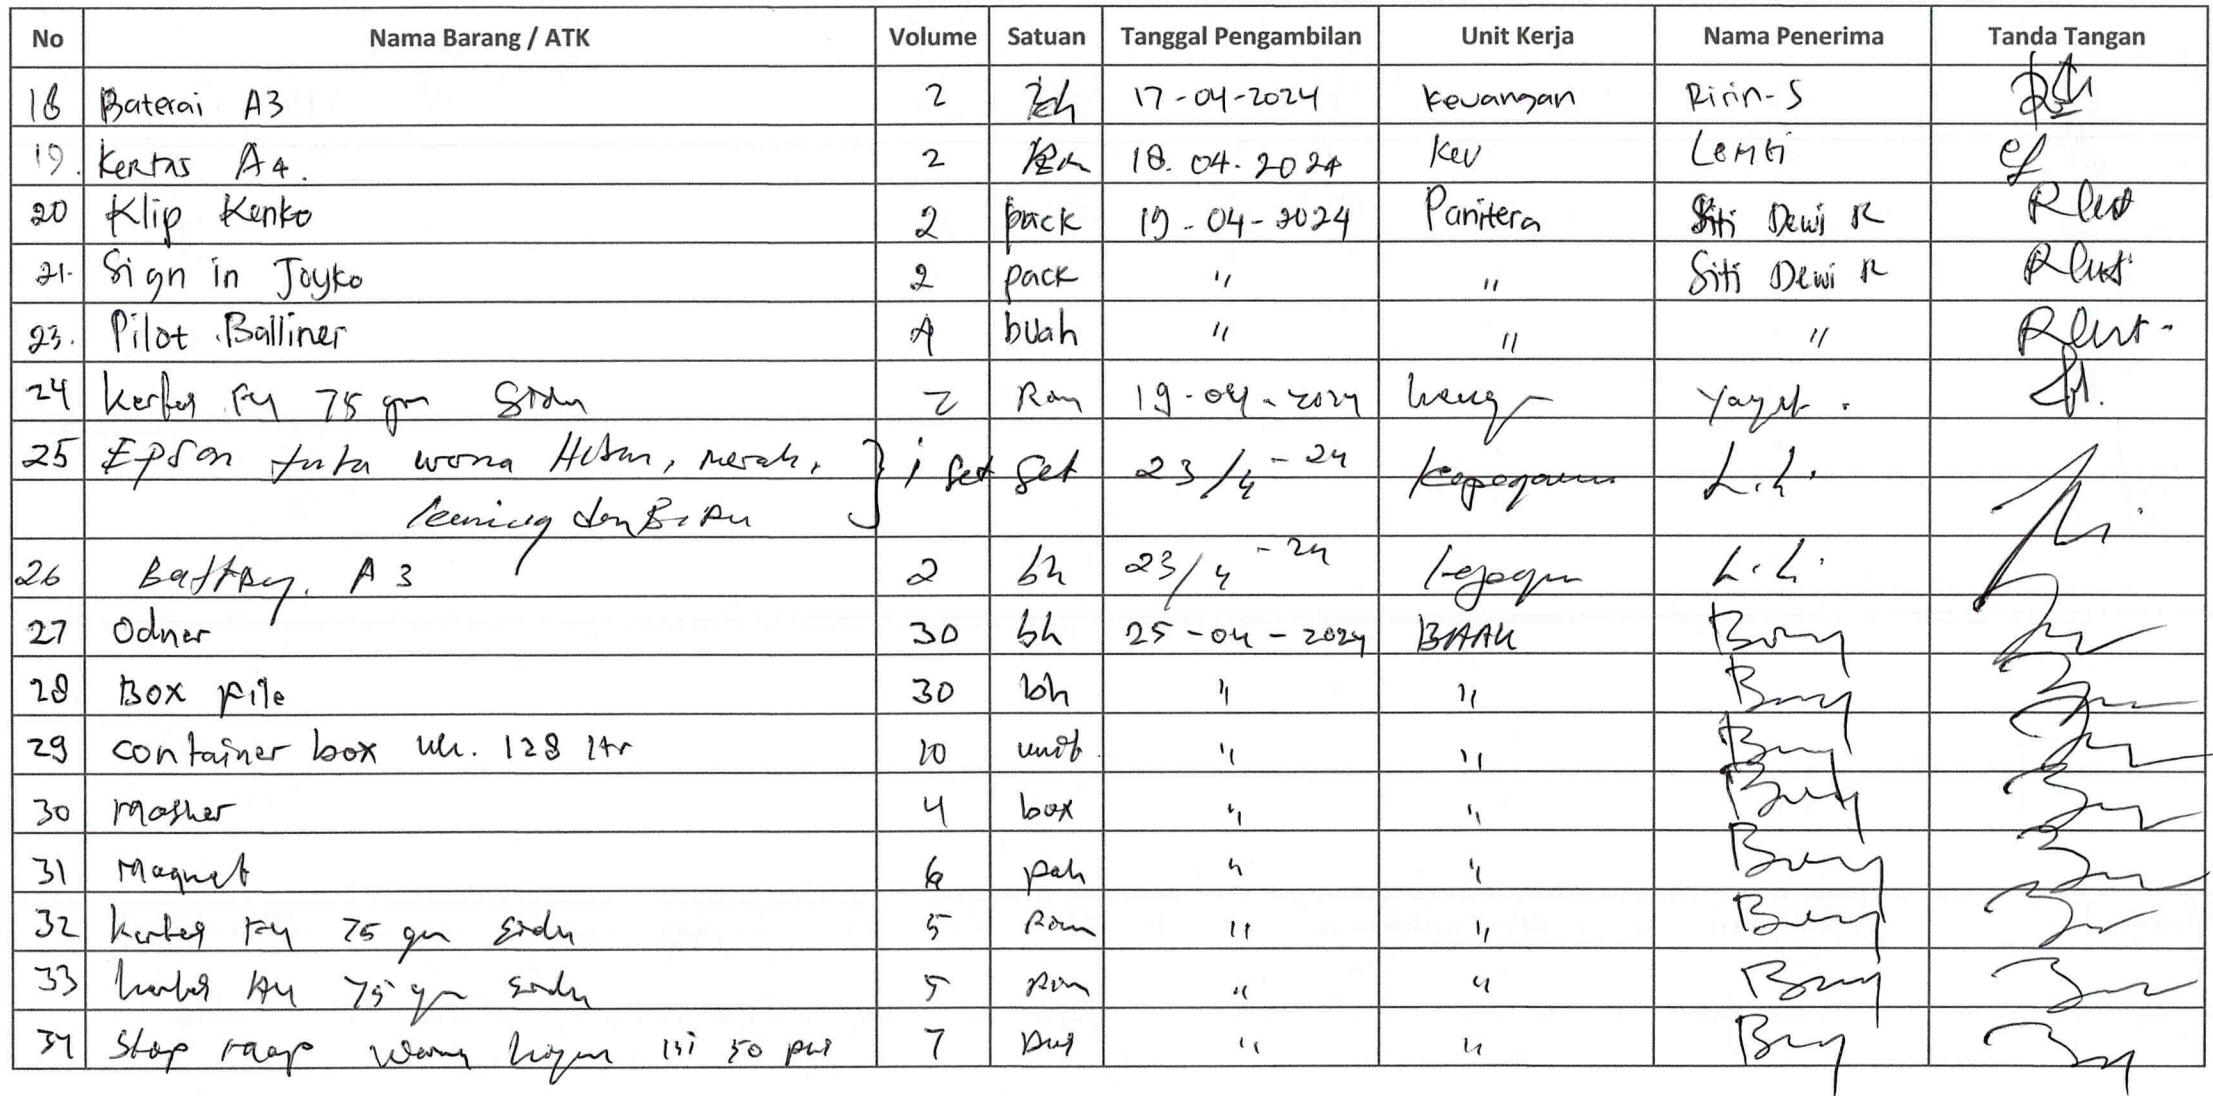 No Nama Barang / ATK Volume Satuan Tanggal Pengambilan Unit Kerja Nama Penerima Tanda Tangan
18 Baterai A3 2 17-04-2024 Keuangan Ririn-S
19. Kertas A4. 2 18.04.2024 Keu Lemti
20 Klip Kenko 2 pack 19-04-2024 Panitera Siti Dewi R
21. Sign in Joyko 2 pack " " Siti Dewi R
23. Pilot Balliner buah " " "
24 Kertas F4 75 gm Sidu 2 Rim 19-04-2024 Yayat.
25 Epson tinta warna Hitam, merah, } 1 Set Set 23/4-24 Kepegawaian L.L.
kuning dan Biru
26 Battray. A3 2 bh 23/4-24 L.L.
27 Odner 30 bh 25-04-2024 BAAK Bony
28 Box file 30 bh " "
29 container box uk. 128 ltr 10 unit " "
30 Masker 4 box " "
31 Magnet 6 pak " "
32 Kertas F4 75 gm Sidu 5 Rim " "
33 Kertas A4 75 gm Sidu 5 Rim " "
34 Stop map warna isi 50 pcs 7 " "